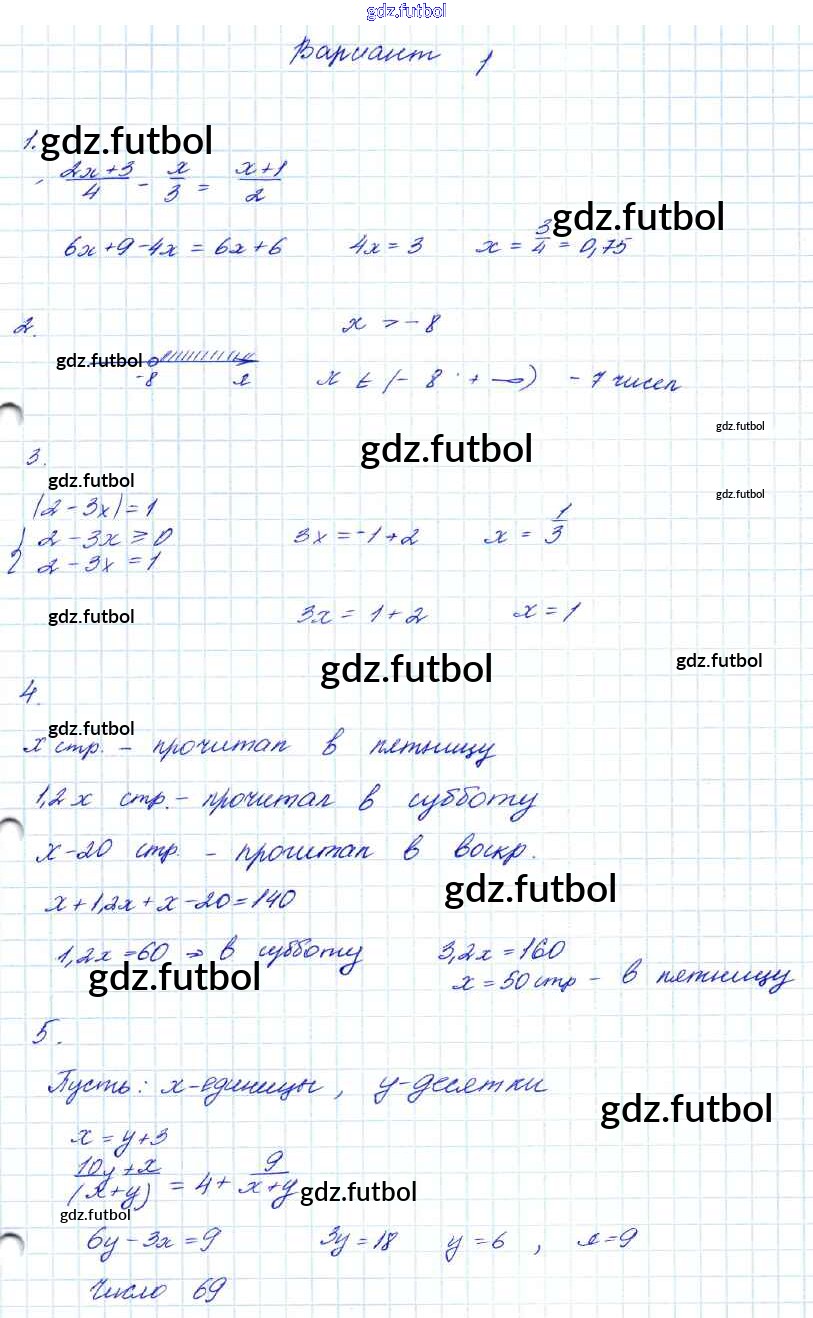 gdz.futbol
Вариант 1
1. gdz.futbol
(2x+3)/4 - x/3 = (x+1)/2
gdz.futbol
6x+9-4x = 6x+6 4x = 3 x = 3/4 = 0,75
2. x > -8
gdz.futbol
-8 x x ∈ (-8 ; +∞) - 7 чисел
gdz.futbol
3. gdz.futbol
gdz.futbol
gdz.futbol
|2-3x| = 1
2-3x ≥ 0 3x = -1+2 x = 1/3
2-3x = 1
gdz.futbol 3x = 1+2 x = 1
gdz.futbol gdz.futbol
4.
gdz.futbol
x стр. - прочитал в пятницу
1,2x стр. - прочитал в субботу
x-20 стр. - прочитал в воскр.
gdz.futbol
x+1,2x+x-20=140
1,2x=60 → в субботу 3,2x=160
gdz.futbol x=50 стр - в пятницу
5.
Пусть: x-единицы, y-десятки
gdz.futbol
x = y+3
(10y+x)/(x+y) = 4 + 9/(x+y) gdz.futbol
gdz.futbol
6y-3x=9 3y=18 y=6, x=9
Число 69